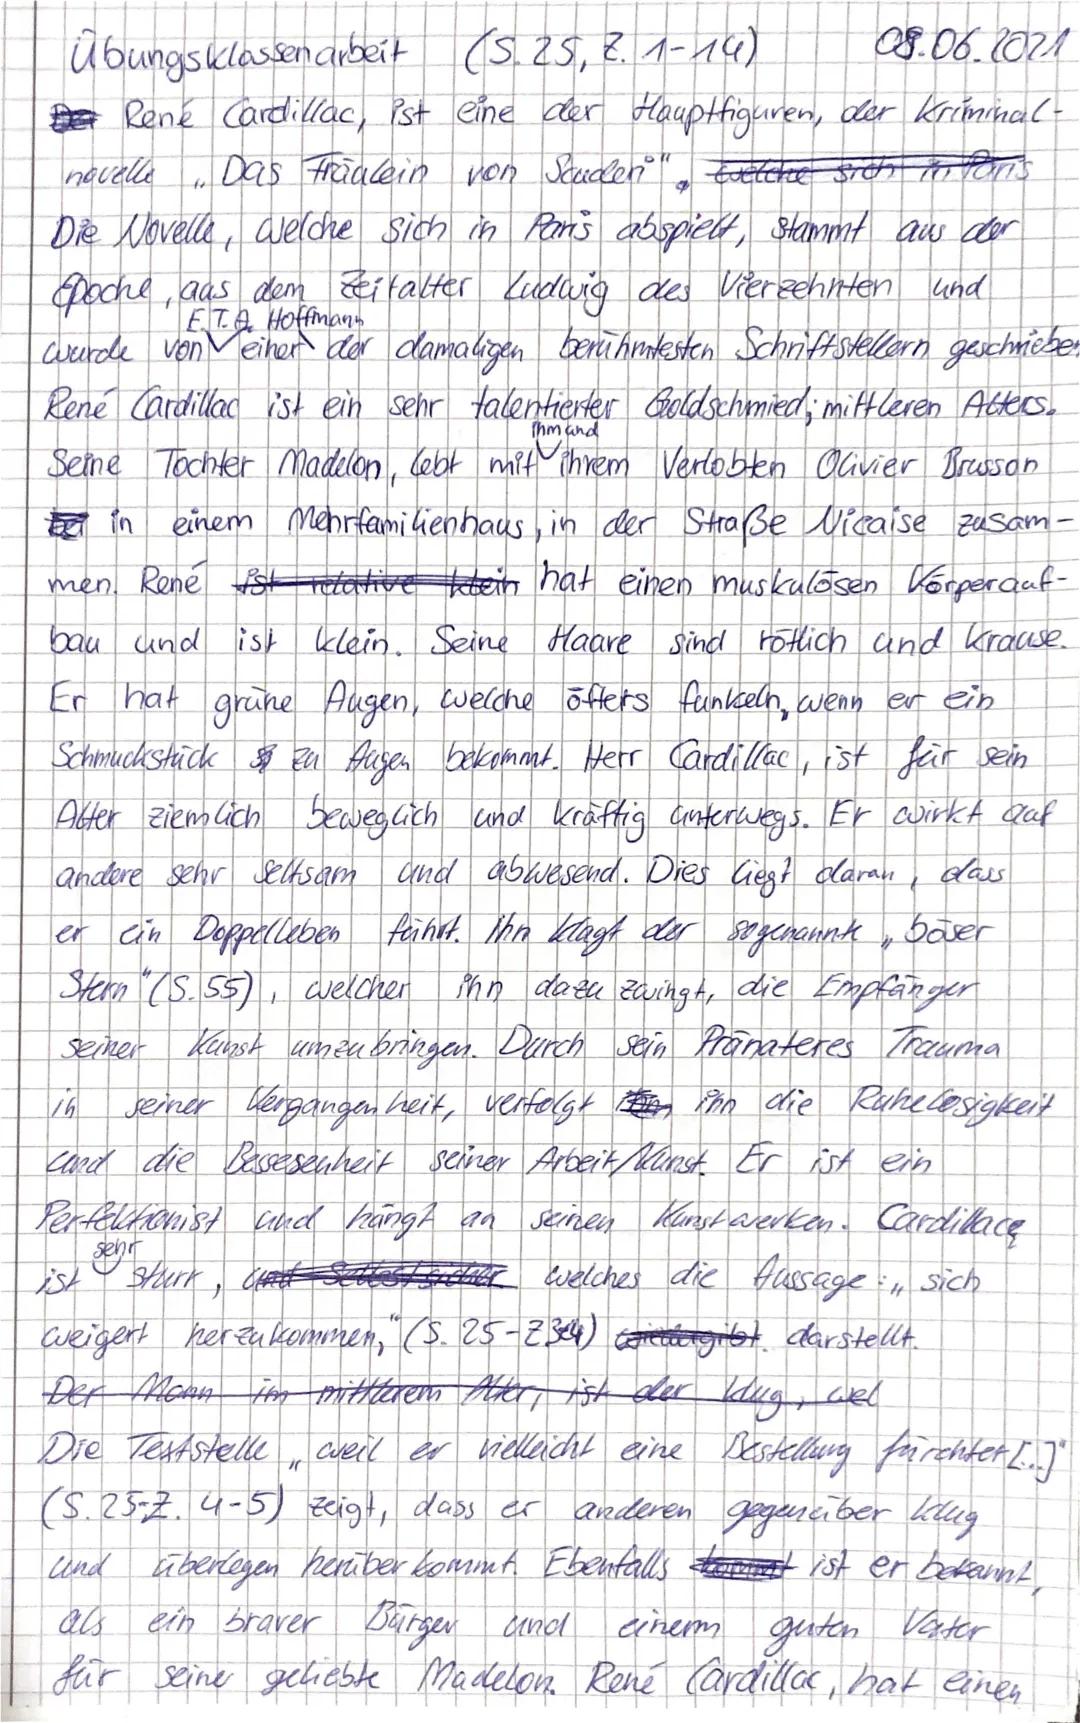 Übungsklassenarbeit (S. 25, Z. 1-14) 08.06.2021
René Cardillac, ist eine der Hauptfiguren, der Kriminal-
novelle „Das Fräulein von Scuderi". welche sich in Paris
Die Novelle, welche sich in Paris abspielt, stammt aus der
Epoche, aus dem Zeitalter Ludwig des Vierzehnten und
E.T.A. Hoffmann
wurde von einer der damaligen berühmtesten Schriftstellern geschrieben
René Cardillac ist ein sehr talentierter Goldschmied; mittleren Alters.
ihm und
Seine Tochter Madelon, lebt mit ihrem Verlobten Olivier Brusson
in einem Mehrfamilienhaus, in der Straße Nicaise zusam-
men. René ist relative klein hat einen muskulösen Körperauf-
bau und ist klein. Seine Haare sind rötlich und krause.
Er hat grüne Augen, welche öfters funkeln, wenn er ein
Schmuckstück zu Augen bekommt. Herr Cardillac, ist für sein
Alter ziemlich beweglich und kräftig unterwegs. Er wirkt auf
andere sehr seltsam und abwesend. Dies liegt daran, dass
er ein Doppelleben führt. Ihn klagt der sogenannte „böser
Stern" (S. 55), welcher ihn dazu zwingt, die Empfänger
seiner Kunst umzubringen. Durch sein Pränateres Trauma
in seiner Vergangenheit, verfolgt ihn die Ruhelosigkeit
und die Bessesenheit seiner Arbeit/Kunst. Er ist ein
Perfektionist und hängt an seinen Kunstwerken. Cardillac
sehr
ist sturr, und Selbstsicher welches die Aussage: „sich
weigert herzukommen," (S. 25-Z 3-4) wiedergibt. darstellt.
Der Mann im mittlerem Alter, ist der klug, wel
Die Textstelle „weil er vielleicht eine Bestellung fürchtet [...]"
(S. 25-Z. 4-5) zeigt, dass er anderen gegenüber klug
und überlegen herüber kommt. Ebenfalls kommt ist er bekannt,
als ein braver Bürger und einem guten Vater
für seine geliebte Madelon. René Cardillac, hat einen